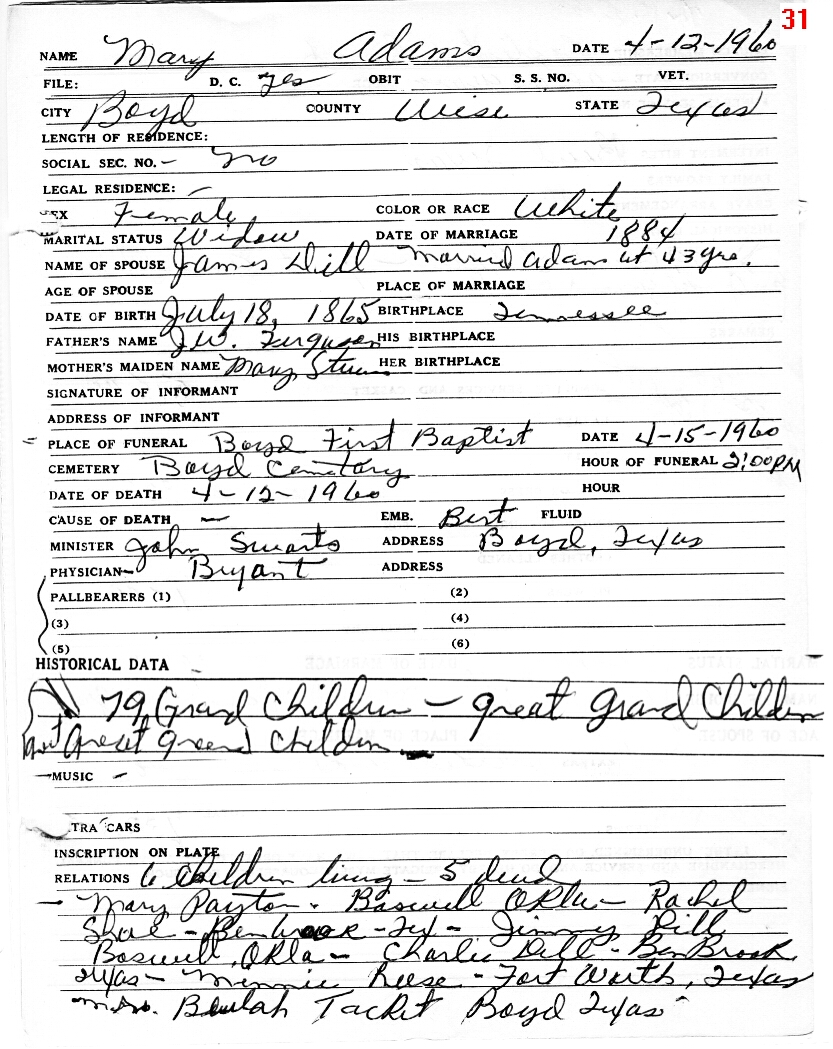 31
NAME Mary Adams DATE 4-12-1960
FILE: D. C. yes OBIT S. S. NO. VET.
CITY Boyd COUNTY Wise STATE Texas
LENGTH OF RESIDENCE:
SOCIAL SEC. NO. - no
LEGAL RESIDENCE: -
SEX Female COLOR OR RACE White
MARITAL STATUS Widow DATE OF MARRIAGE 1884
NAME OF SPOUSE James Dill Married Adams at 43 yrs.
AGE OF SPOUSE PLACE OF MARRIAGE
DATE OF BIRTH July 18, 1865 BIRTHPLACE Tennessee
FATHER'S NAME J.W. Ferguson HIS BIRTHPLACE
MOTHER'S MAIDEN NAME Mary HER BIRTHPLACE
SIGNATURE OF INFORMANT
ADDRESS OF INFORMANT
PLACE OF FUNERAL Boyd First Baptist DATE 4-15-1960
CEMETERY Boyd Cemetary HOUR OF FUNERAL 2:00 PM
DATE OF DEATH 4-12-1960 HOUR
CAUSE OF DEATH - EMB. Bert FLUID
MINISTER John Swarts ADDRESS Boyd, Texas
PHYSICIAN- Bryant ADDRESS
PALLBEARERS (1) (2)
(3) (4)
(5) (6)
HISTORICAL DATA
79 Grand Children - great grand Children
and Great Great Children
MUSIC -
TRA CARS
INSCRIPTION ON PLATE
RELATIONS 6 Children living - 5 dead
- Mary Payton - Boswell Okla - Rachel
- Benbrook - Tex - Jimmy Dill
Boswell, Okla - Charlie Dill - BenBrook
Texas - Minnie Reese - Fort Worth, Texas
Mrs. Beulah Tacket Boyd Texas